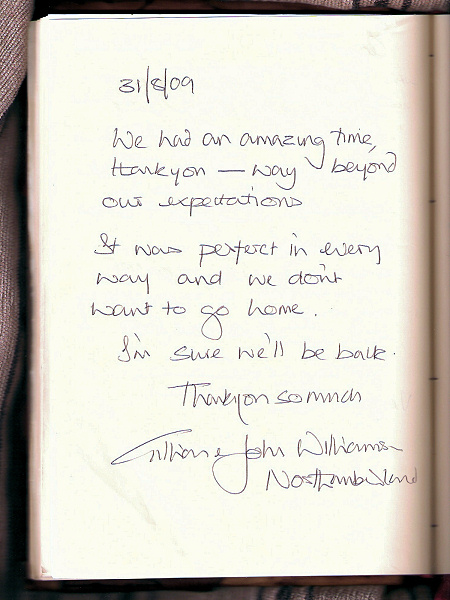 31/8/09
We had an amazing time,
thankyou — way beyond
our expectations
It was perfect in every
way and we don't
want to go home.
I'm sure we'll be back.
Thankyou so much
Gillian & John Williamson
Northumberland